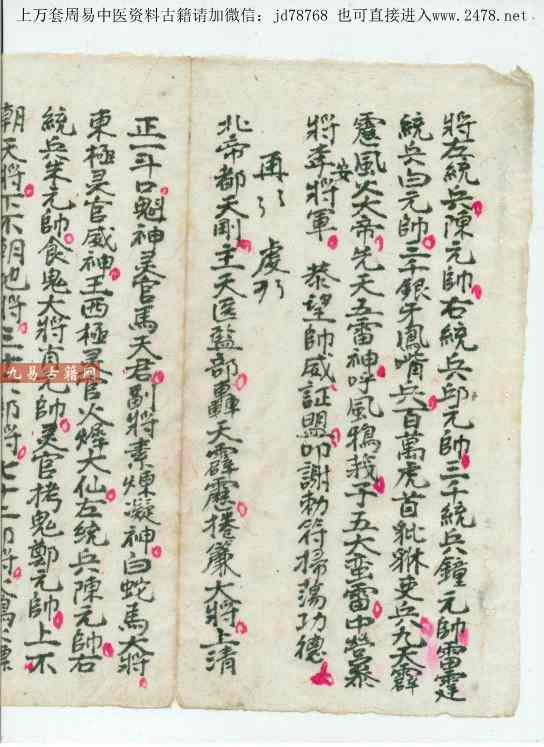 上万套周易中医资料古籍请加微信：jd78768 也可直接进入www.2478.net
將左統兵陳元帥右統兵邱元帥三千統兵鐘元帥雷霆
統兵白元帥三千銀牙鳳嘴兵百萬虎首貔貅吏兵九天霹
靂風火大帝先天五雷神呼風鴉千五大蛮雷中營暴
將李將軍 恭望帥威証盟叩謝勅符掃蕩功德
安
再 虔
北帝都天剛主天医监部轟天霹靂捲簾大將上清
正一斗口魁神灵官馬天君副將素煉凝神白蛇馬大將
東極灵官威神王西極灵官火輝大仙左統兵陳元帥右
統兵朱元帥食鬼大將元帥灵官拷鬼鄭元帥上不
朝天將下不朝地將三十將七十二
九易古籍网